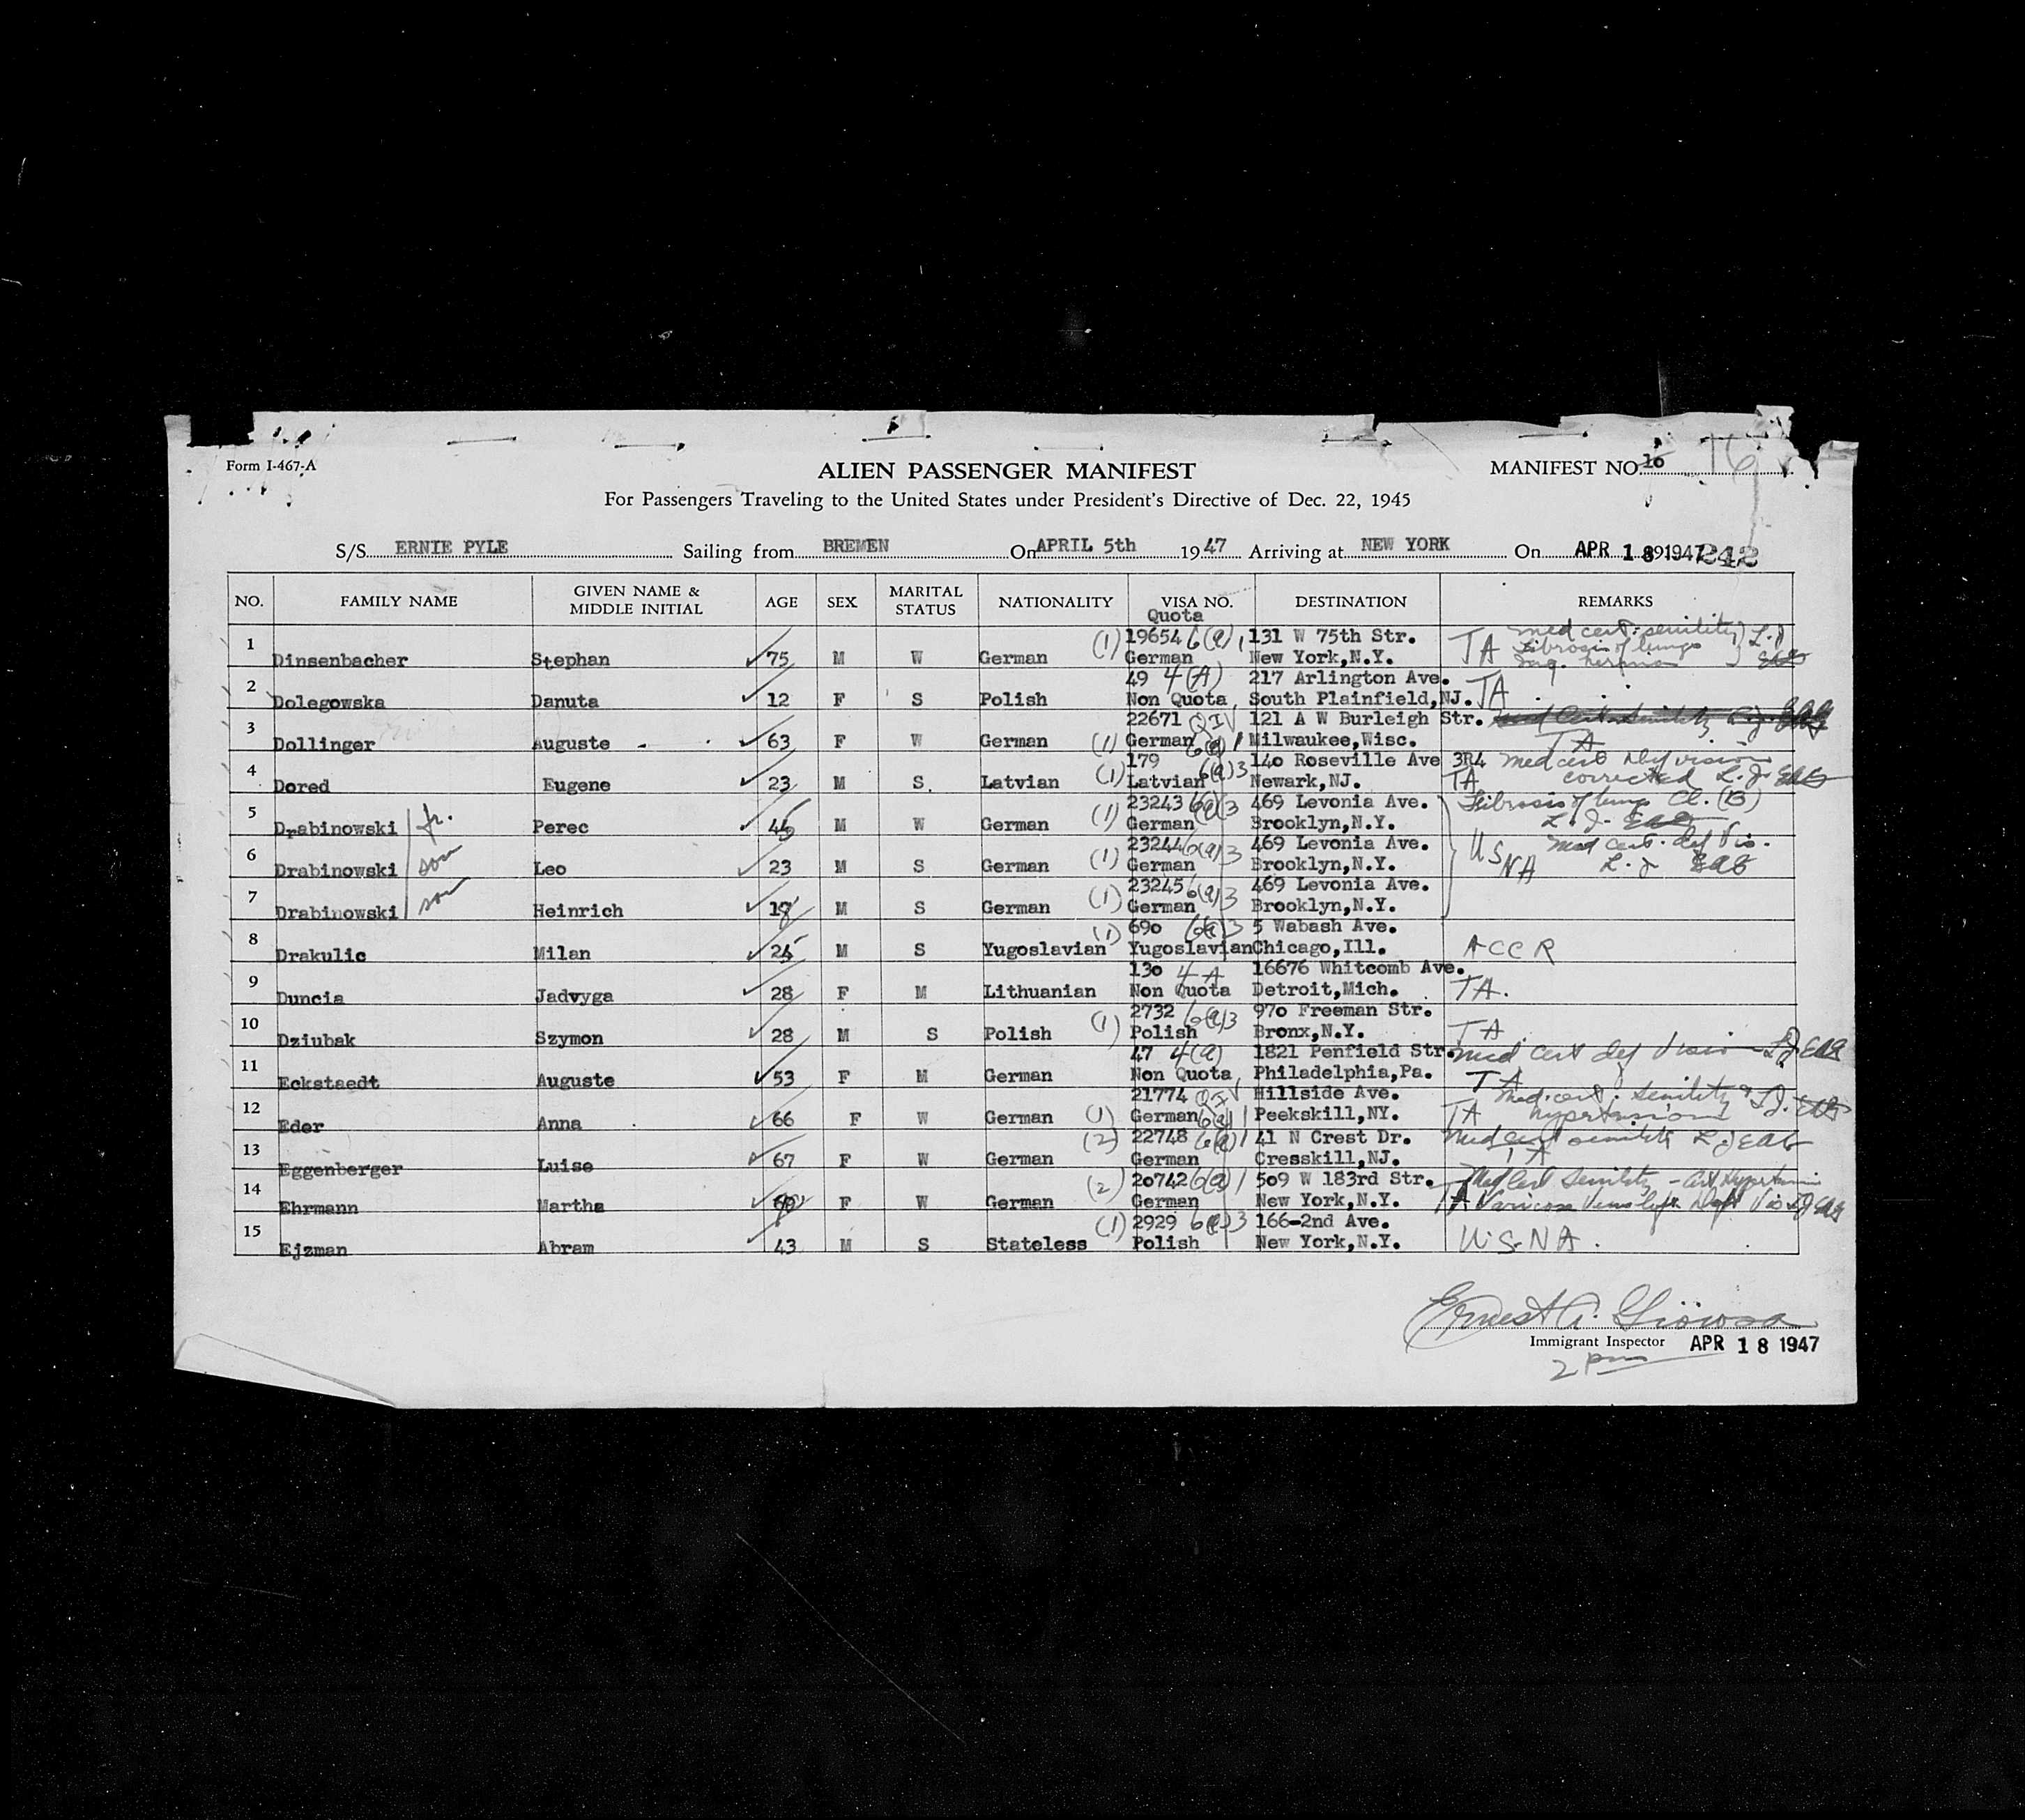 Form I-467-A
ALIEN PASSENGER MANIFEST
MANIFEST NO. 10 16
For Passengers Traveling to the United States under President's Directive of Dec. 22, 1945
S/S ERNIE PYLE Sailing from BREMEN On APRIL 5th 1947 Arriving at NEW YORK On APR 18 1947
NO. FAMILY NAME GIVEN NAME & MIDDLE INITIAL AGE SEX MARITAL STATUS NATIONALITY VISA NO. DESTINATION REMARKS
Quota
1 Dinsenbacher Stephan 75 M W German (1) 19654 6(a)1 German 131 W 75th Str. New York,N.Y. TA med cert: senility fibrosis of lungs ing. hernia
2 Dolegowska Danuta 12 F S Polish 49 4(A) Non Quota 217 Arlington Ave. South Plainfield,NJ. TA
3 Dollinger Auguste 63 F W German (1) 22671 QIV German 6(a)1 121 A W Burleigh Str. Milwaukee,Wisc. TA
4 Dored Eugene 23 M S Latvian (1) 179 6(a)3 Latvian 140 Roseville Ave Newark,NJ. 3R4 med cert Def vision corrected TA
5 Drabinowski fr. Perec 45 M W German (1) 23243 6(a)3 German 469 Levonia Ave. Brooklyn,N.Y. Fibrosis of lung Cl. (B)
6 Drabinowski son Leo 23 M S German (1) 23244 6(a)3 German 469 Levonia Ave. Brooklyn,N.Y. USNA med cert. def Vis.
7 Drabinowski son Heinrich M S German (1) 23245 6(a)3 German 469 Levonia Ave. Brooklyn,N.Y.
8 Drakulic Milan M S Yugoslavian (1) 690 6(a)3 Yugoslavian 5 Wabash Ave. Chicago,Ill. ACCR
9 Duncia Jadvyga 28 F M Lithuanian 130 4 A Non Quota 16676 Whitcomb Ave. Detroit,Mich. TA.
10 Dziubak Szymon 28 M S Polish (1) 2732 6(a)3 Polish 970 Freeman Str. Bronx,N.Y. TA
11 Eckstaedt Auguste 53 F M German 47 4(a) Non Quota 1821 Penfield Str. Philadelphia,Pa. med cert def Vision TA
12 Eder Anna 66 F W German (1) 21774 QIV German 6(a)1 Hillside Ave. Peekskill,NY. TA med.cert: senility & hypertension
13 Eggenberger Luise 67 F W German (2) 22748 6(a)1 German 41 N Crest Dr. Cresskill,NJ. med cert senility TA
14 Ehrmann Martha 60 F W German (2) 20742 6(a)1 German 509 W 183rd Str. New York,N.Y. TA Med Cert Senility - Art Hypertension Varicose Veins left Def Vis
15 Ejzman Abram 43 M S Stateless (1) 2929 6(a)3 Polish 166-2nd Ave. New York,N.Y. U.S.N.A.
Ernest A.
Immigrant Inspector APR 18 1947
2 pm